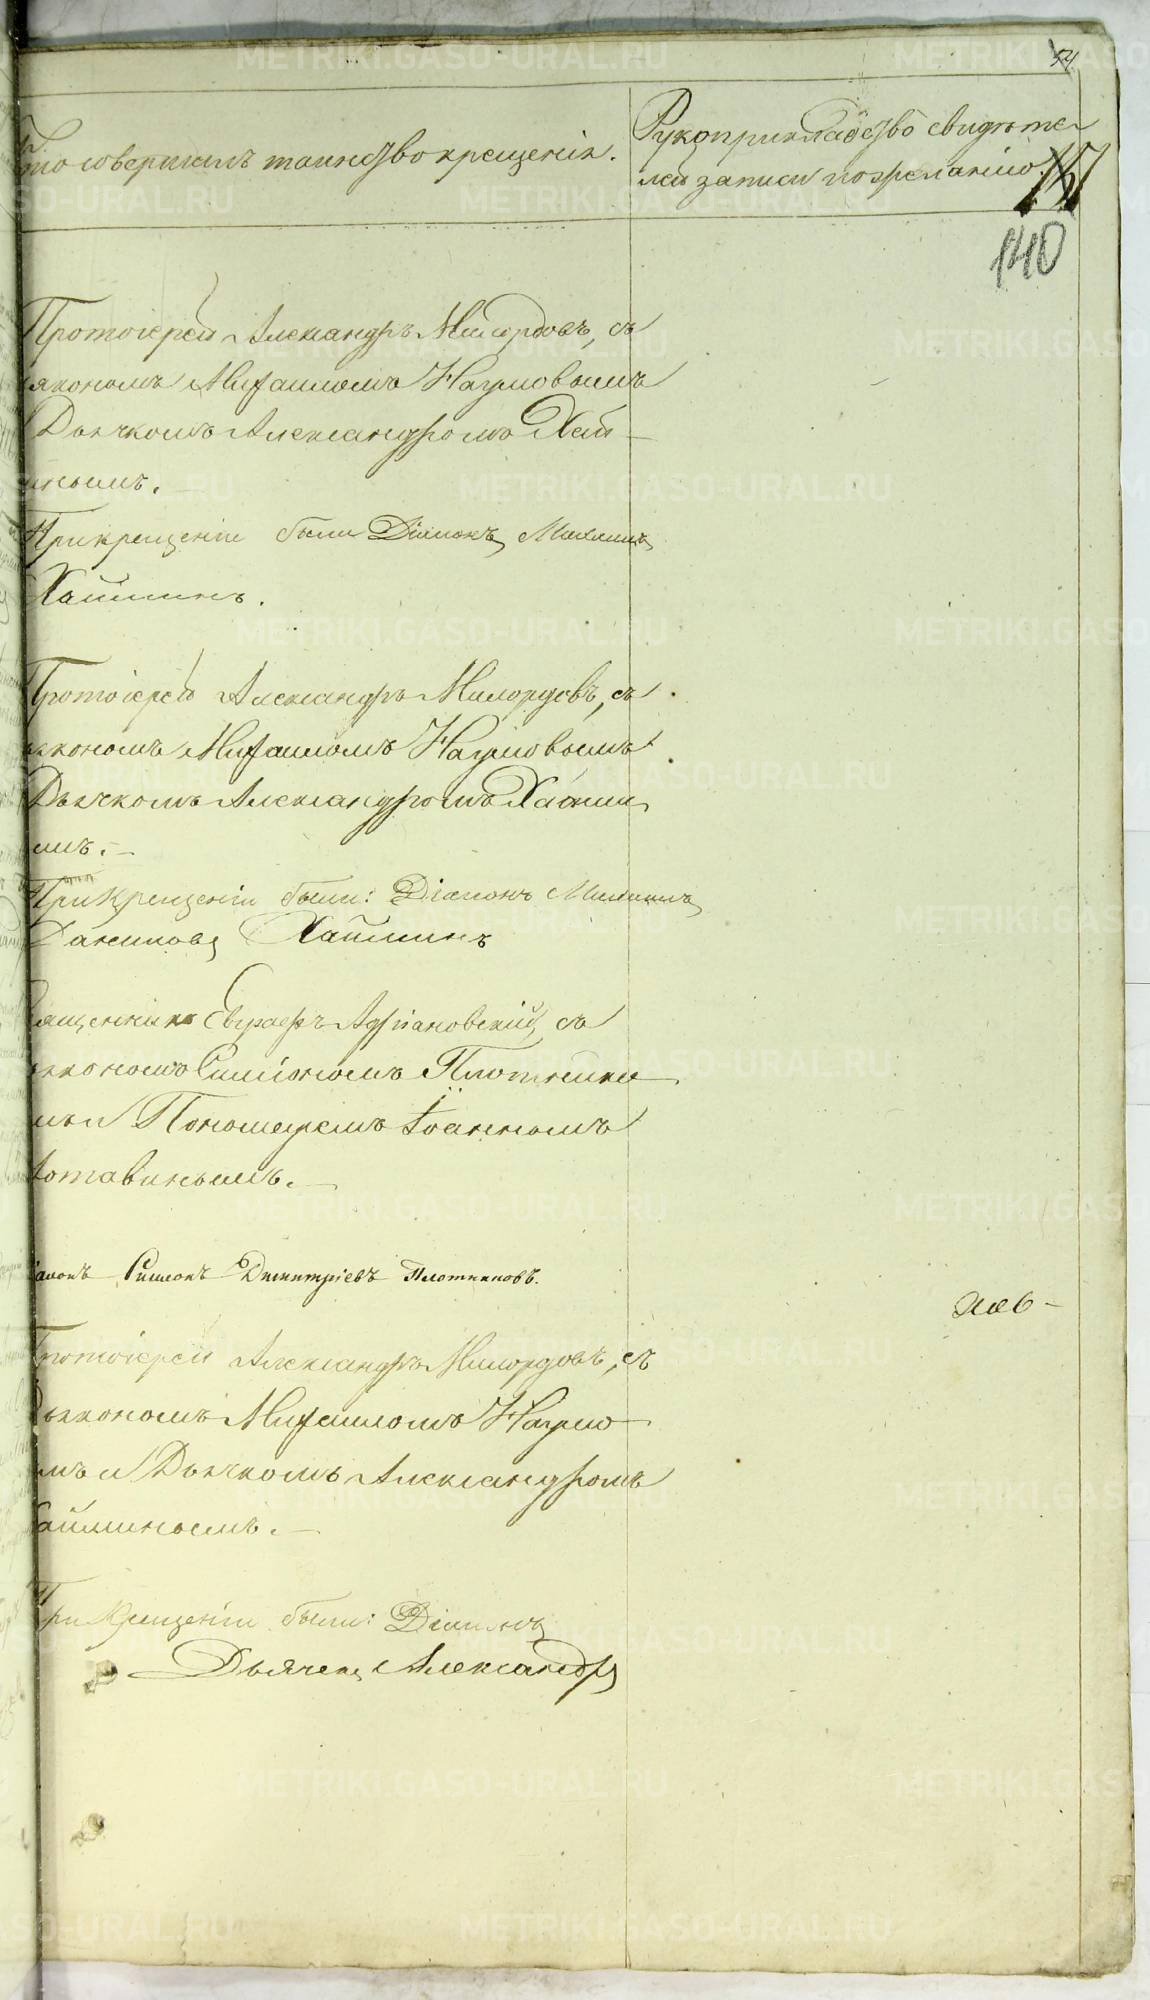 54
Кто совершилъ таинство крещенія.
Рукоприкладство свидѣте-
лей записи по желанію.
140
Протоіерей Александръ Милордовъ, съ
Діакономъ Михаиломъ Наумовымъ
Дьячкомъ Александромъ Хай-
миньымъ.
При крещеніи были Діаконъ Михаилъ
Хайминъ.
Протоіерей Александръ Милордовъ, съ
Дьякономъ Михаиломъ Наумовымъ
Дьячкомъ Александромъ Хайми
ымъ.
При крещеніи были: Діаконъ Михаилъ
Хайминъ
Священникъ Евграфъ Адріановскій, съ
Дьякономъ Симіономъ Плотнико
мъ и Пономаремъ Іоанномъ
Діаконъ Симеонъ Димитріевъ Плотниковъ.
Протоіерей Александръ Милордовъ, съ
Дьякономъ Михаиломъ Наумо
мъ и Дьячкомъ Александромъ
Хайминымъ.
При крещеніи были: Діаконъ
Дьячекъ Александръ
METRIKI.GASO-URAL.RU